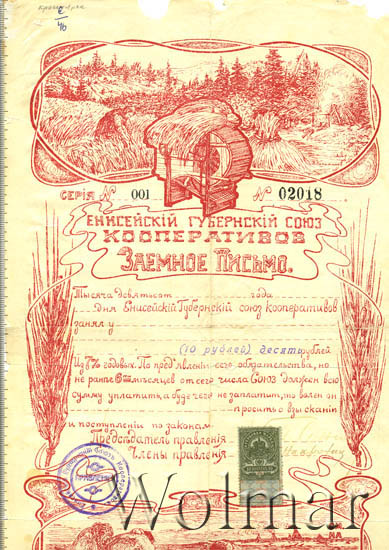 СЕРІЯ № 001 № 02018
ЕНИСЕЙСКІЙ ГУБЕРНСКІЙ СОЮЗ
КООПЕРАТИВОВ
ЗАЕМНОЕ ПИСЬМО.
Тысяча девятьсот года
дня Енисейскій Губернскій союз кооперативов
занял у
(10 рублей) десять рублей
Из 7% годовых. По пред'явленіи сего обязательства, но
не ранее месяцев от сего числа Союз должен всю
сумму уплатить, а буде чего не заплатит, то волен он
просить о взысканіи
и поступленіи по законам.
Председатель правленія
Члены правленія
ПРАВЛЕНІЕ
Wolmar